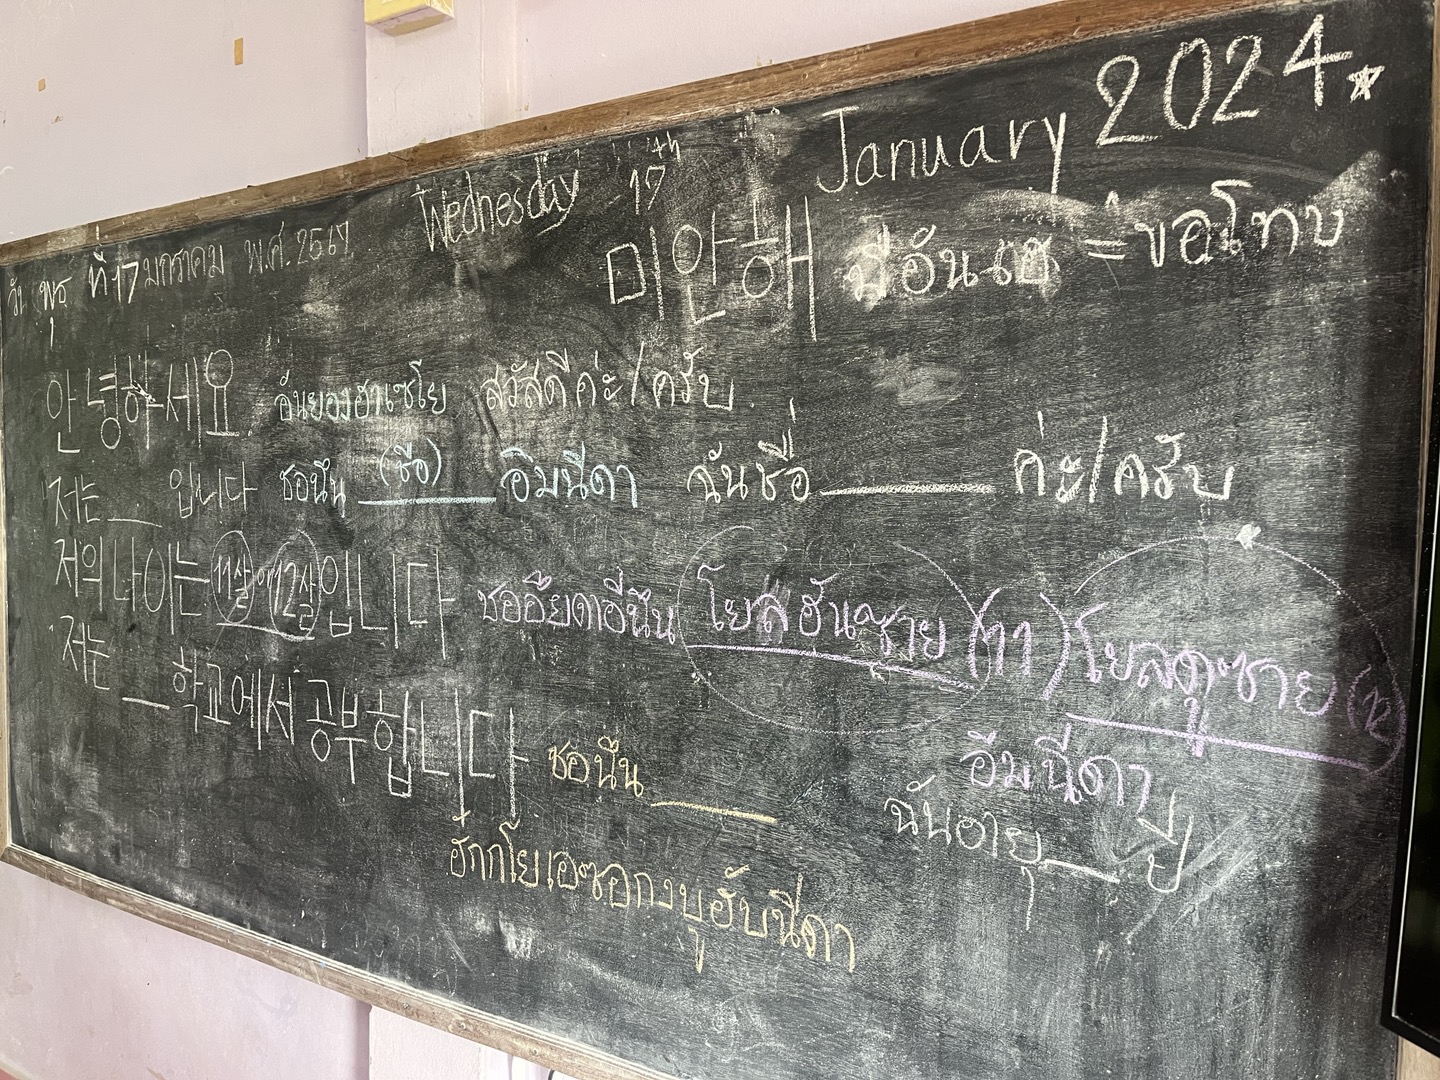 วัน พุธ ที่ 17 มกราคม พ.ศ. 2567 Wednesday 17th January 2024
미안해 มีอันเฮ = ขอโทษ
안녕하세요 อันยองฮาเซโย สวัสดีค่ะ/ครับ
저는 ___ 입니다 ชอนึน (ชื่อ) อิมนีดา ฉันชื่อ ______ ค่ะ/ครับ
저의 나이는 11살 에 12살 입니다 ชออึยดาอีนึน โยลฮันซาย (11) โยลดูซาย (12)
อิมนีดา
ฉันอายุ ___ ปี
저는 __ 학교에서 공부합니다 ชอนึน ______
ฮักกโยเอซอกงบูฮับนีดา